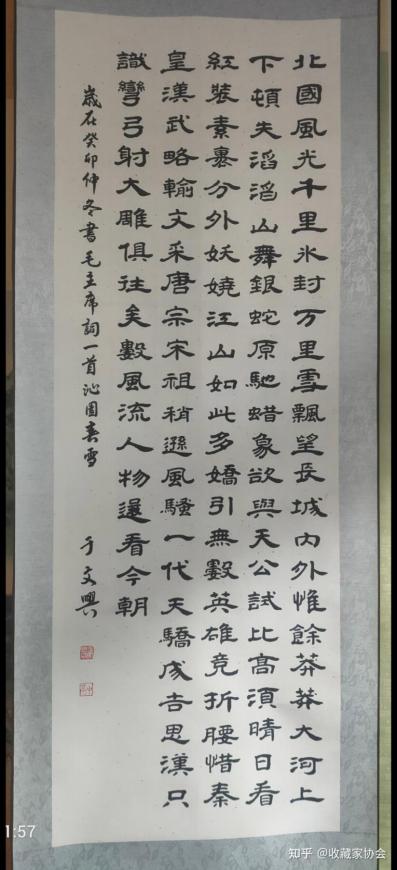 北國風光千里氷封万里雪飄望長城内外惟餘莽莽大河上
下頓失滔滔山舞銀蛇原馳蜡象欲與天公試比高須晴日看
紅裝素裹分外妖嬈江山如此多嬌引無數英雄竞折腰惜秦
皇漢武略輸文采唐宗宋祖稍遜風騷一代天驕成吉思漢只
識彎弓射大雕俱往矣數風流人物還看今朝
歲在癸卯仲冬書毛主席詞一首沁園春雪 于文興
1:57
知乎 @收藏家协会